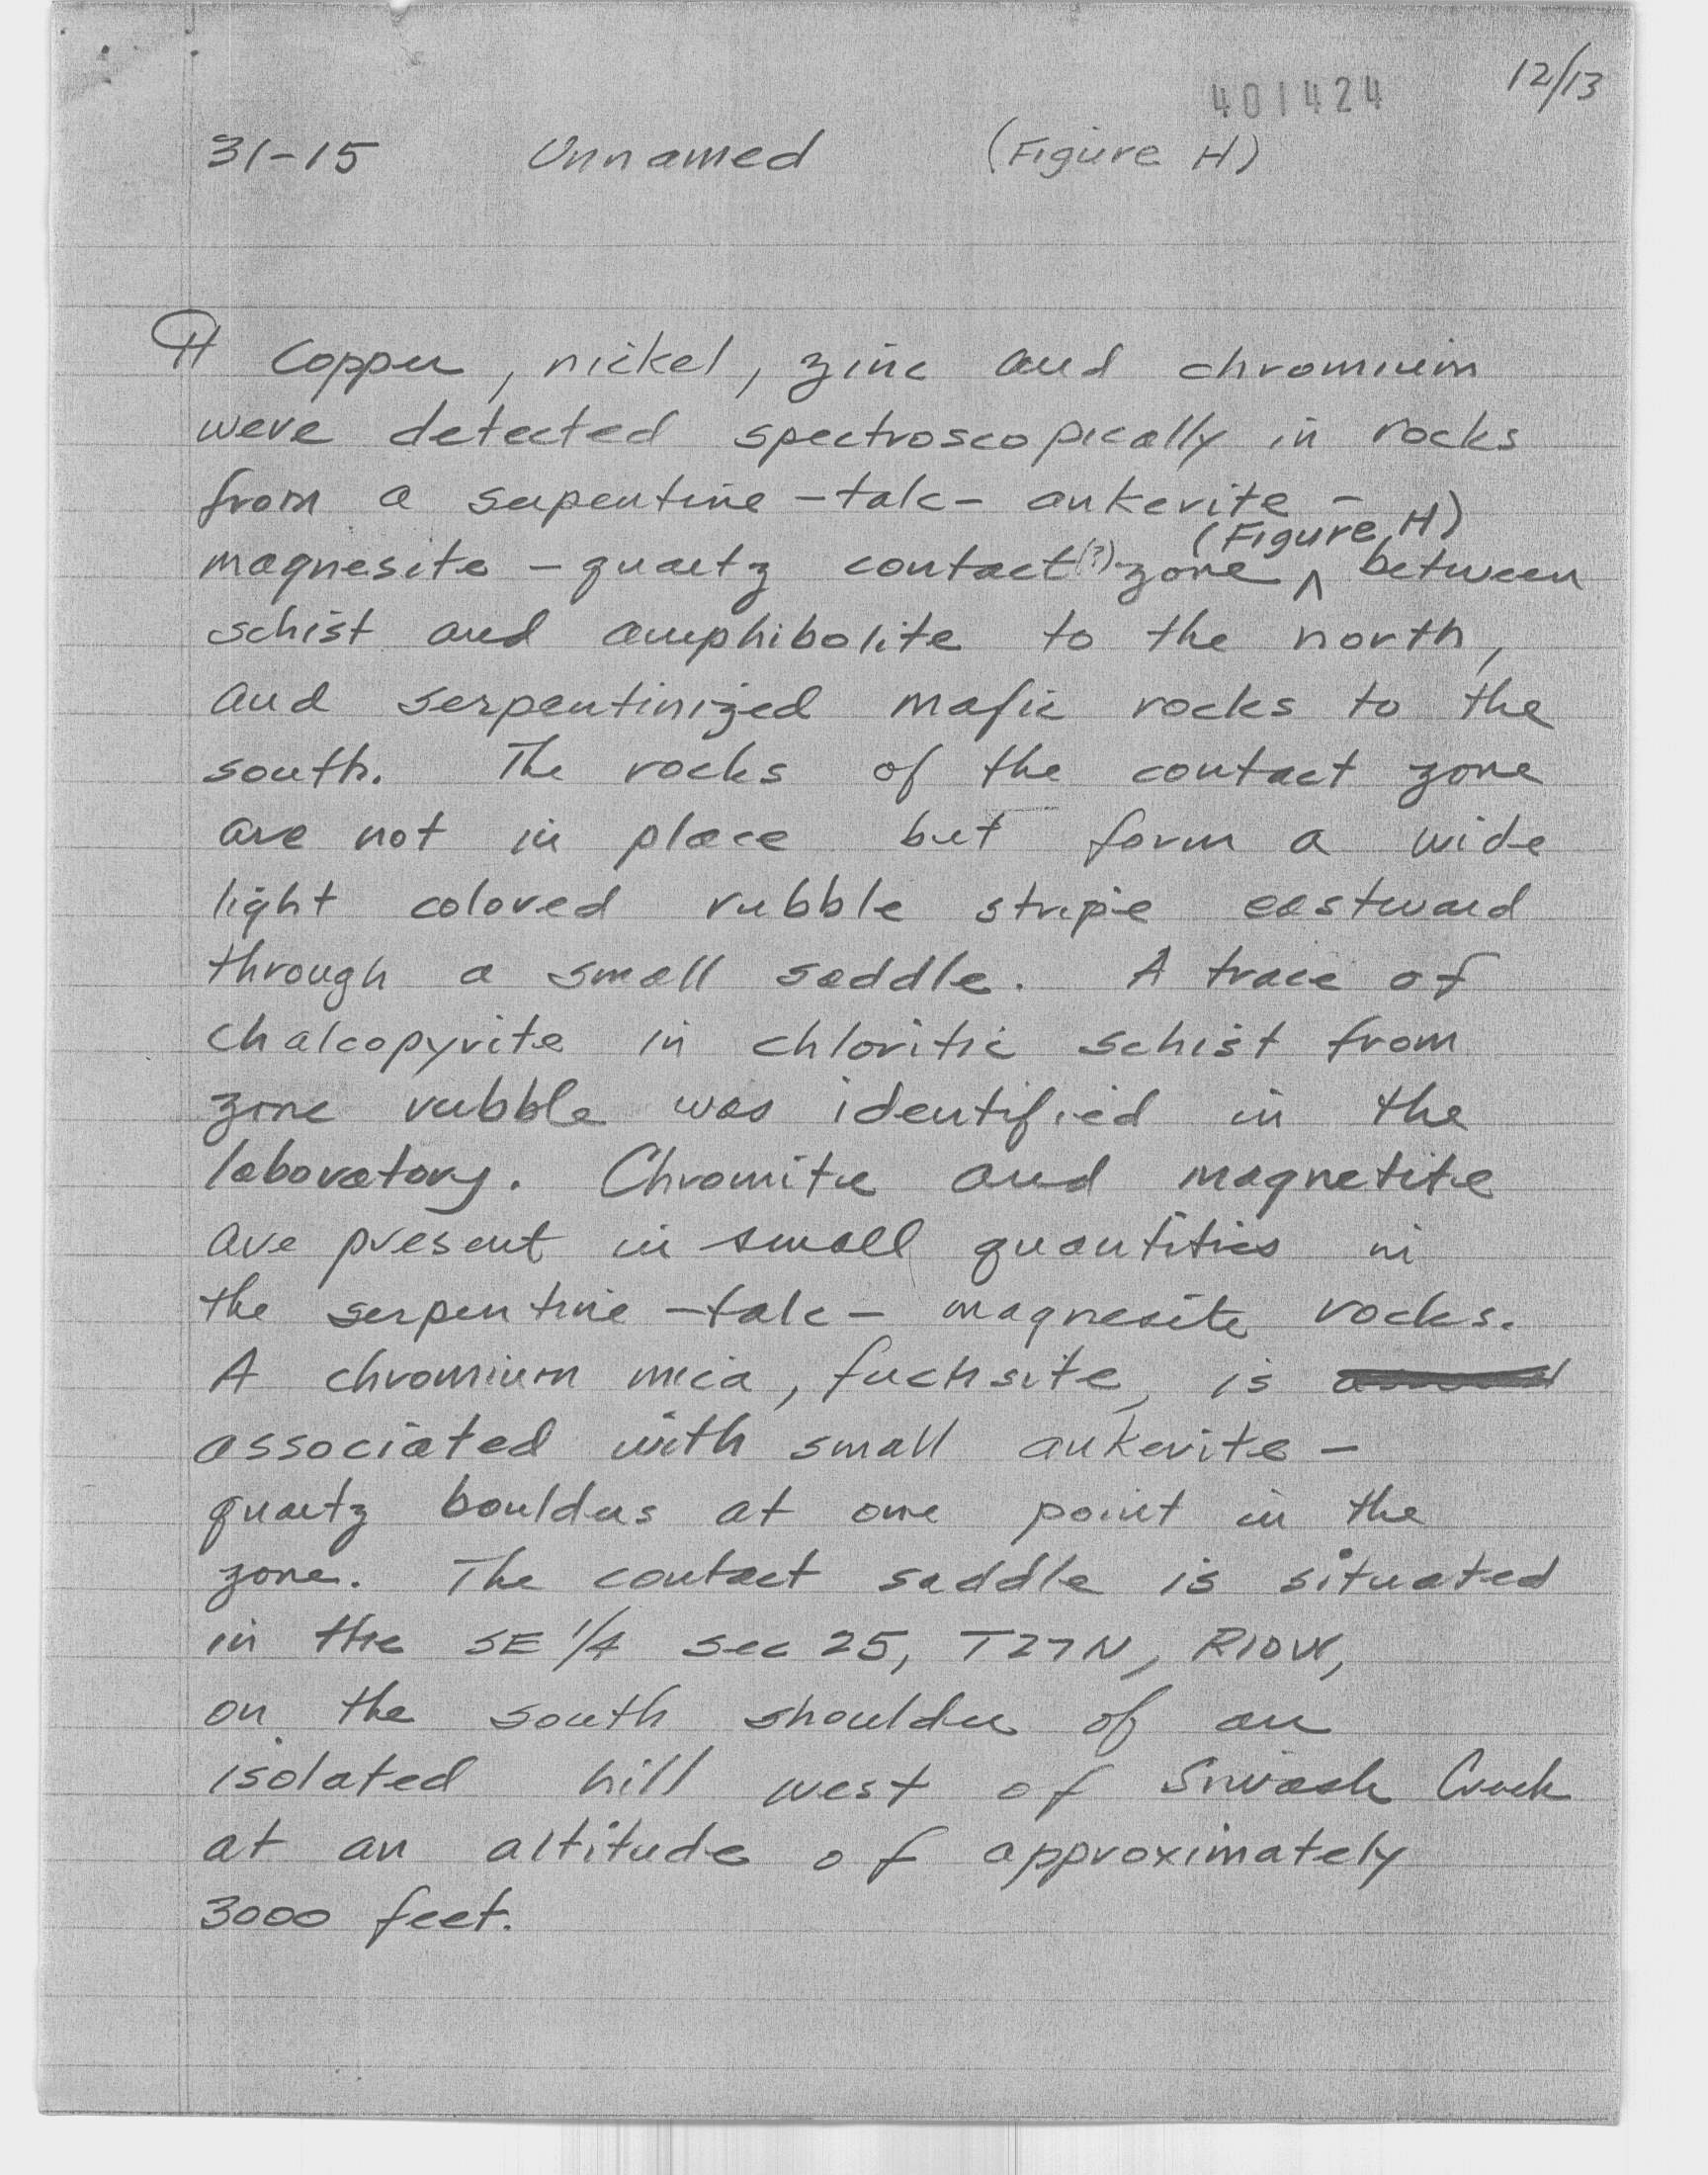 12/13
401424
31-15 Unnamed (Figure H)
¶ Copper, nickel, zinc and chromium
were detected spectroscopically in rocks
from a serpentine-talc-ankerite-
(Figure H)
magnesite-quartz contact(?) zone ^ between
schist and amphibolite to the north,
and serpentinized mafic rocks to the
south. The rocks of the contact zone
are not in place but form a wide
light colored rubble stripe eastward
through a small saddle. A trace of
chalcopyrite in chloritic schist from
zone rubble was identified in the
laboratory. Chromite and magnetite
are present in small quantities in
the serpentine-talc-magnesite rocks.
A chromium mica, fuchsite, is
associated with small ankerite-
quartz boulders at one point in the
zone. The contact saddle is situated
in the SE 1/4 sec 25, T27N, R10W,
on the south shoulder of an
isolated hill west of Siwash Creek
at an altitude of approximately
3000 feet.